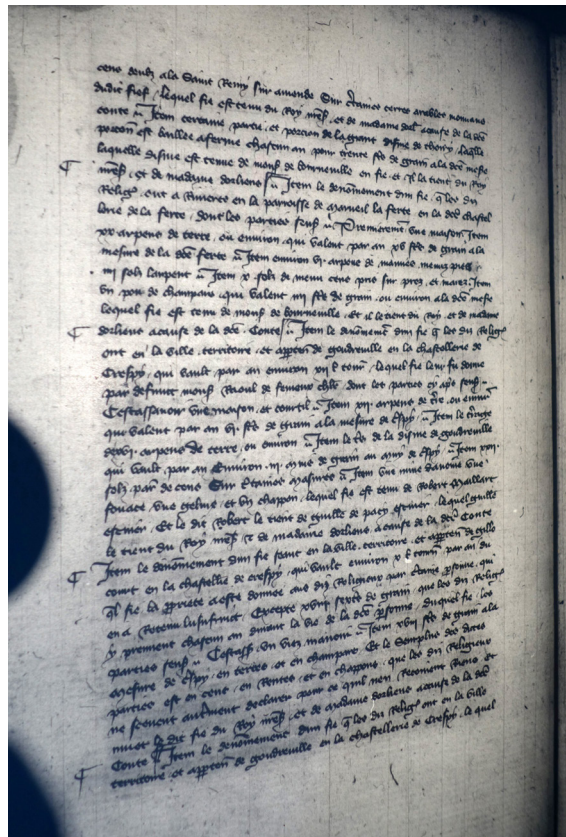 cens deubz ala Saint Remy sur amende Sur certaines terres arables mouvans
dudit fief lequel fie est tenu du Roy nostre sire et de madame dorliens acause de la dicte
conte Item certaine partie et porcion de la grant disme de thoiry laquelle
porcion est baillee a ferme chascun an pour trente sestiers de grain ala dicte mesure
laquelle disme est tenue de monsieur de bonneville en fie et il la tient du Roy
nostre sire et de madame dorliens Item le denommement dun fie que les diz
Religieux ont a Rivieres en la parroisse de mareuil la ferte en la dicte chastel
lerie de la ferte dont les parties sensuivent Premierement une maison Item
xx arpens de terre ou environ qui valent par an xv sestiers de grain ala
mesure de la dicte ferte Item environ vi arpens de
iii solz larpent Item x solz de menu cens prins sur prez et marez Item
un pou de champars qui valent iii sestiers de grain ou environ ala dicte mesure
lequel fie est tenu de monsieur de bonneville et il le tient du Roy et de madame
dorliens acause de la dicte Conte Item le denommement dun fie que les diz Religieux
ont en la ville terroire et appartenances de gondreville en la chastellerie de
Crespy qui vault par an environ vii l tournois lequel fie leur fu donne
par deffunct monsieur Raoul de chevalier dont les parties cy apres sensuivent
Cestassavoir une maison et courtil Item xii arpens de terre ou environ
qui valent par an vi sestiers de grain ala mesure de Crespy Item le
arpens de terre ou environ Item le tiers de la disme de gondreville
qui vault par an Environ iii muis de grain au muy de Crespy Item xxii
solz parisis de cens Sur certaines masures Item une mine davoine une
fouace une geline et un chappon lequel fie est tenu de Robert maillart
escuier Et le dit Robert le tient de guille de pacy escuier lequel guille
le tient du Roy nostre sire et de madame dorliens acause de la dicte Conte
Item le denommement dun fie seant en la ville terroire et appartenances de
court en la chastellie de crespy qui vault environ x l tournois par an du
quel fie la propriete a este donnee aus diz Religieux par certaine personne qui
en a Retenu lusufruit Excepte xviii sestiers de grain que les diz Religieux
y prennent chascun an durant la vie de la dicte personne duquel fie les
parties sensuivent Cestassavoir Un viez manoir Item xvii sestiers de grain ala
mesure de Crespy en terres et en champars Et le Seurplus des dictes
parties est en cens en Rentes et en chappons que les diz Religieux
ne scevent autrement declarer pour ce quil nen Recoivent Riens et
muet le dit fie du Roy nostre sire et de madame dorliens acause de la dicte
Conte Item le denommement dun fie que les diz Religieux ont en la ville
terroire et appartenances de gondreville en la chastellerie de Crespy lequel